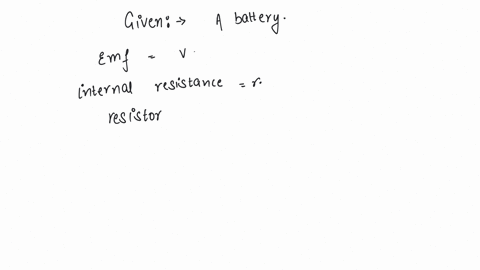 Given:→ A battery.
Emf = V
internal resistance = r.
resistor